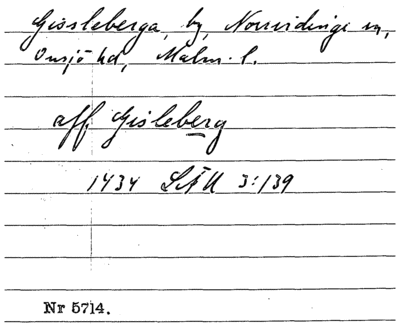 Gissleberga, by, Norrvidinge sn,
Onsjö hd, Malm. l.
aff Gisleberg
1434 LÄU 3:139
Nr 5714.